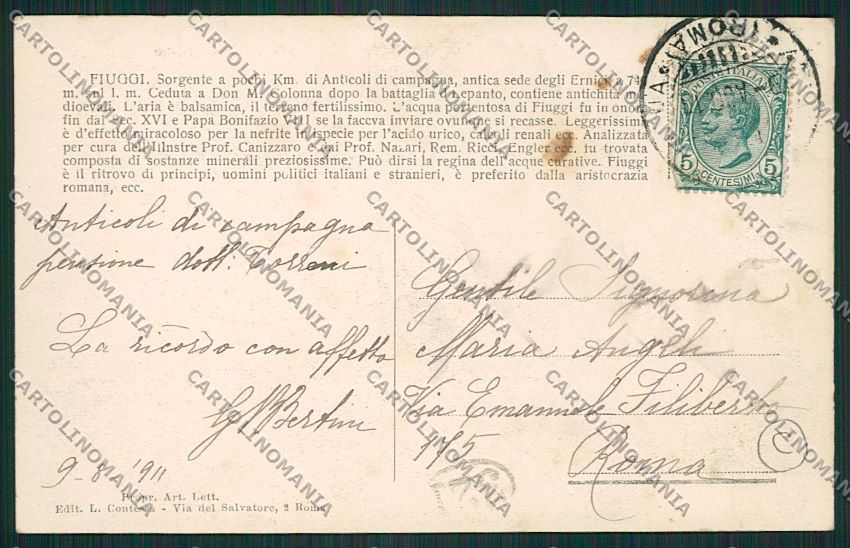 FIUGGI. Sorgente a pochi Km. di Anticoli di campagna, antica sede degli Ernici a
m. sul l. m. Ceduta a Don M. Colonna dopo la battaglia di Lepanto, contiene antichità me-
dioevali. L'aria è balsamica, il terreno fertilissimo. L'acqua portentosa di Fiuggi fu in onore
fin dal sec. XVI e Papa Bonifazio VIII se la faceva inviare ovunque si recasse. Leggerissima
è d'effetto miracoloso per la nefrite in ispecie per l'acido urico, calcoli renali ecc. Analizzata
per cura dell'Illustre Prof. Canizzaro e dai Prof. Nazari, Rem. Ricci, Engler ecc. fu trovata
composta di sostanze minerali preziosissime. Può dirsi la regina dell'acque curative. Fiuggi
è il ritrovo di principi, uomini politici italiani e stranieri, è preferito dalla aristocrazia
romana, ecc.
POSTE ITALIANE
5 5
CENTESIMI
ROMA
Anticoli di campagna
pensione dott.
La ricordo con affetto
G Bertini
9-8-'911
Gentile Signorina
Maria Angeli
Via Emanuele Filiberto
175
Roma
Propr. Art. Lett.
Edit. L. Contesa - Via del Salvatore, 2 Roma
CARTOLINOMANIA